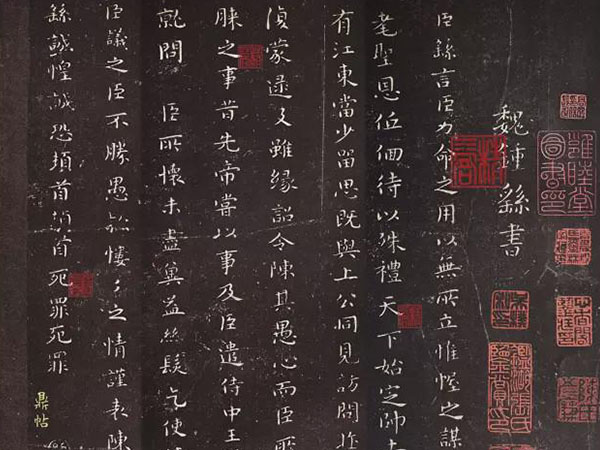 魏鍾繇書
臣繇言臣力命之用以無所立惟幄之謀
耄聖恩低佪待以殊禮天下始定帥土
有江東當少留思既與上公同見訪問
偵蒙逮及雖緣詔令陳其愚心而臣所
之事昔先帝嘗以事及臣遣侍中王
就問 臣所懷未盡奚益絲髮乞使
臣議之臣不勝愚款慺々之情謹表陳
繇誠惶誠恐頓首頓首死罪死罪
鼎帖